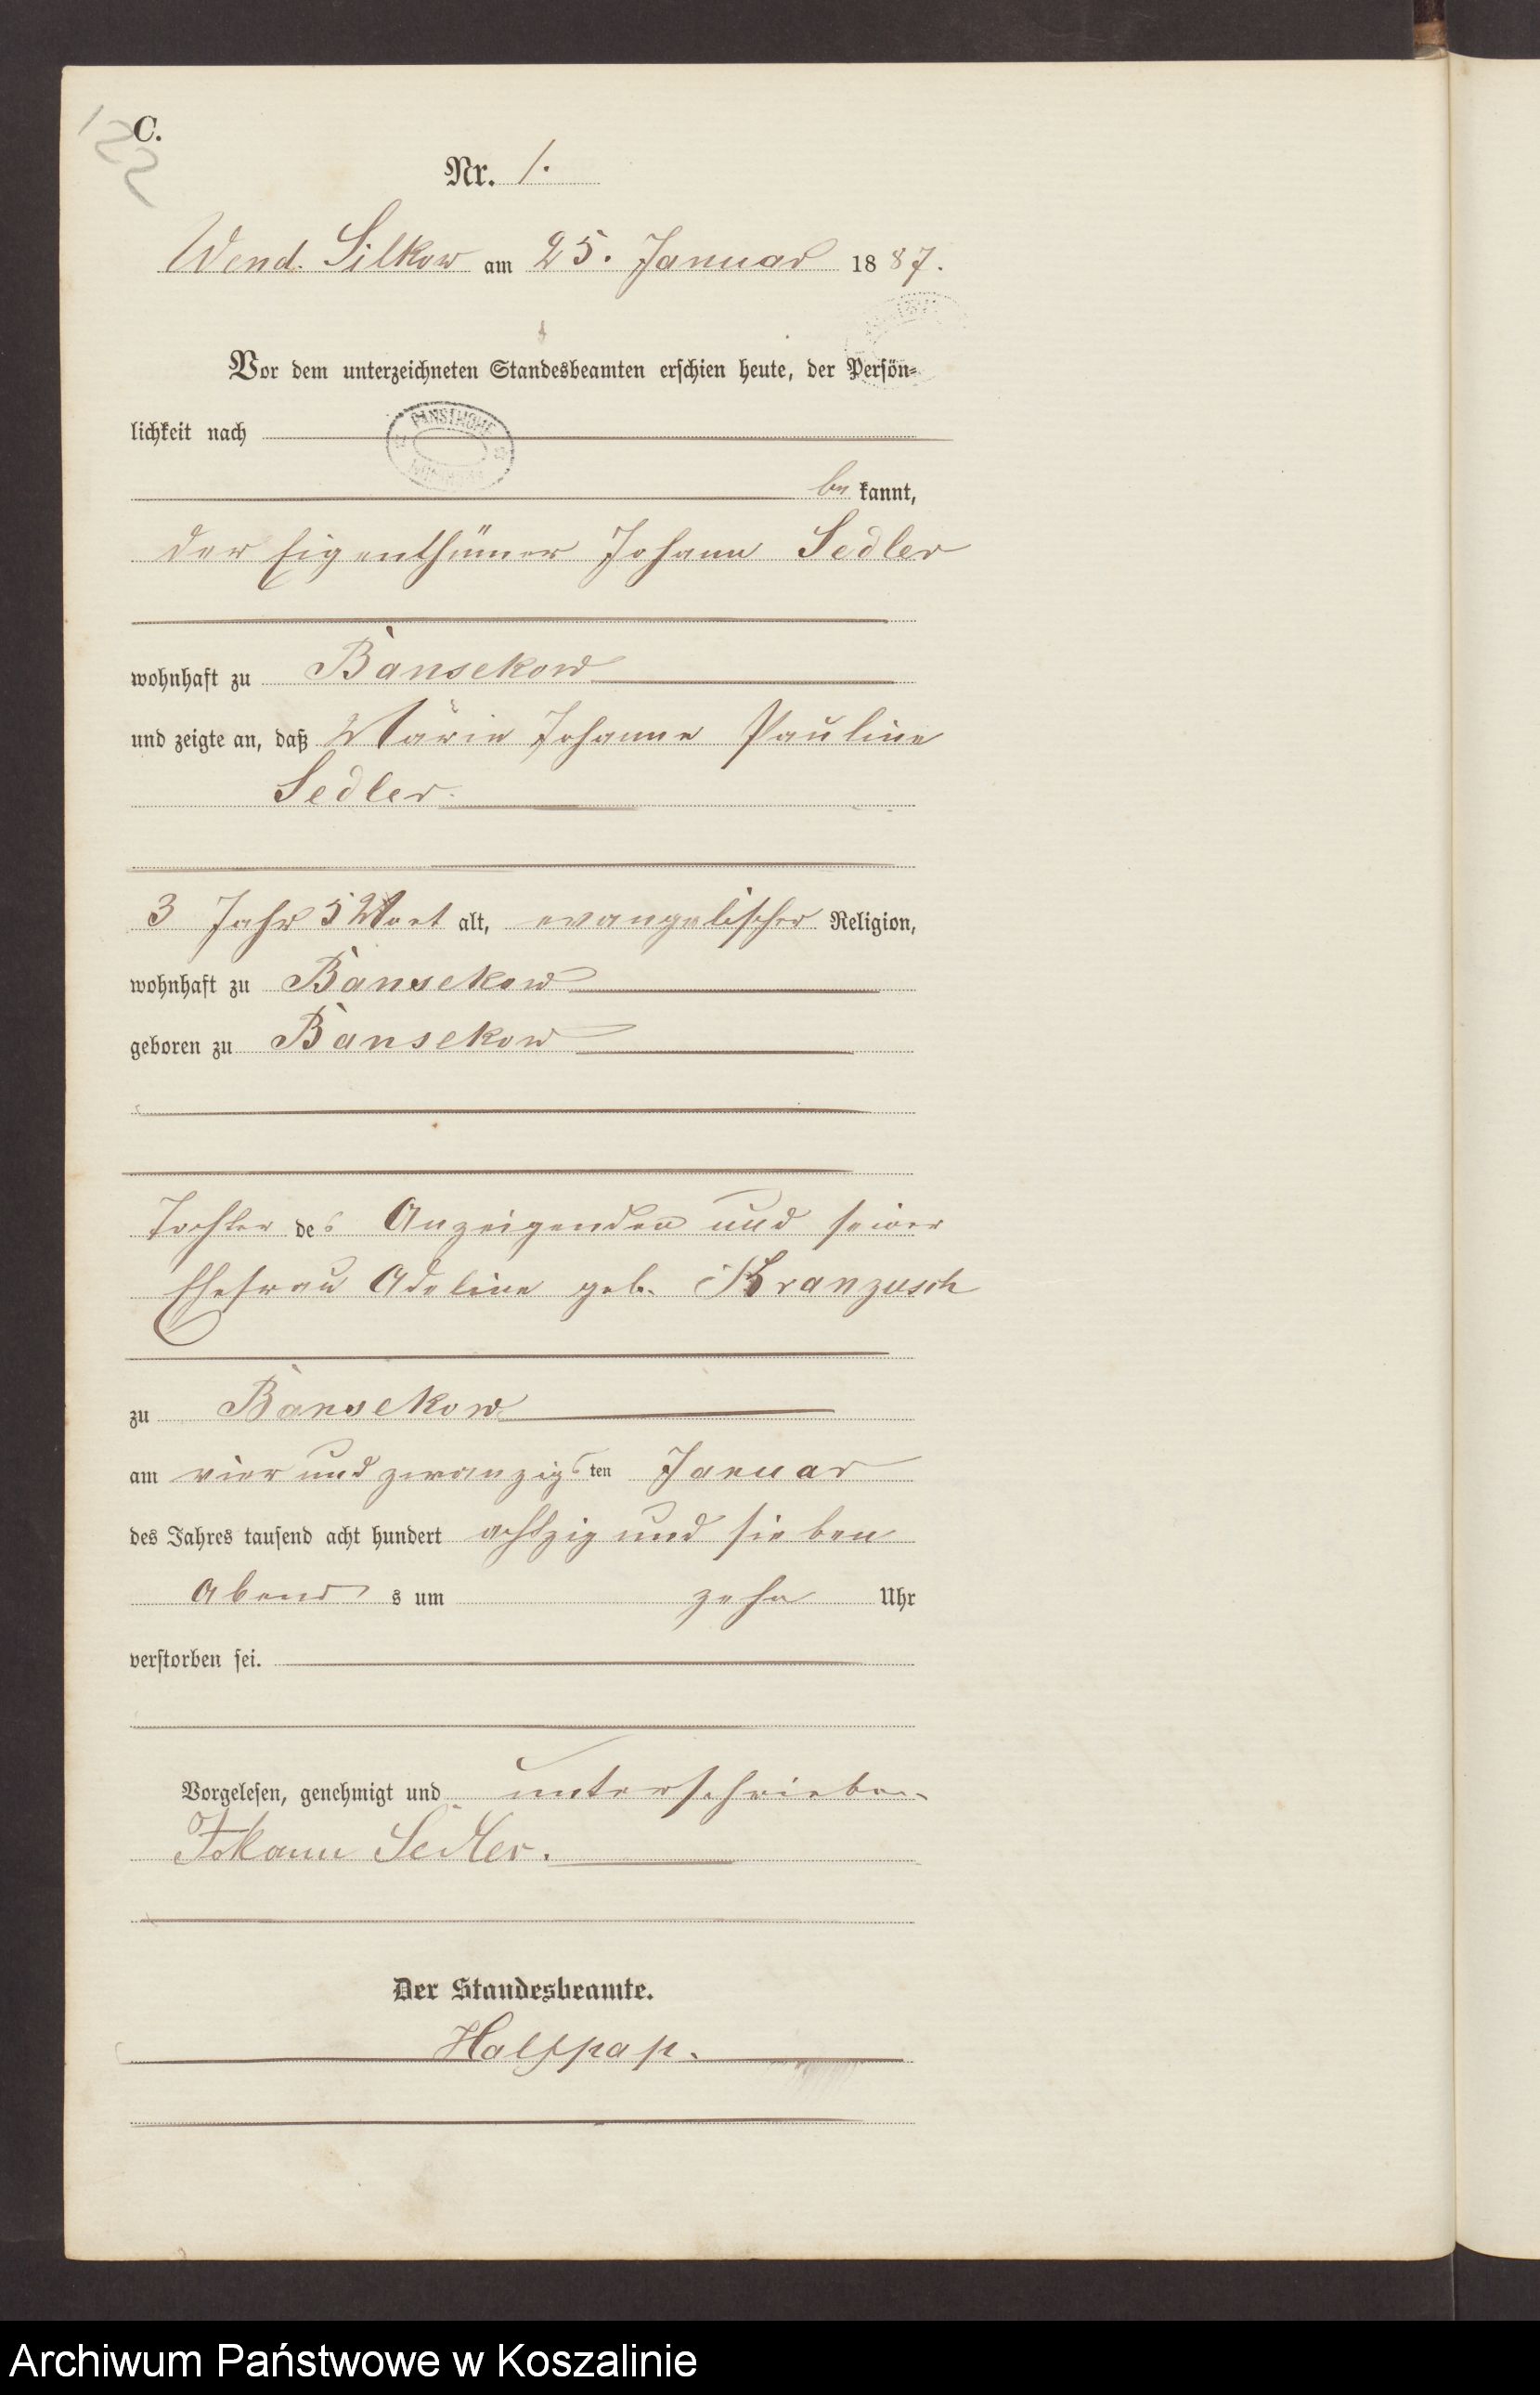 122
C.
Nr. 1.
Wend. Silkow am 25. Januar 1887.
Vor dem unterzeichneten Standesbeamten erschien heute, der Persön-
lichkeit nach
be kannt,
der Eigenthümer Johann Sedler
wohnhaft zu Bansekow
und zeigte an, daß Marie Johanne Pauline
Sedler.
3 Jahr 5 Mont alt, evangelischer Religion,
wohnhaft zu Bansekow
geboren zu Bansekow
Tochter des Anzeigenden und seiner
Ehefrau Adeline geb. Kranzusch
zu Bansekow
am vier und zwanzigsten Januar
des Jahres tausend acht hundert achtzig und sieben
Abends um zehn Uhr
verstorben sei.
Vorgelesen, genehmigt und unterschrieben
Johann Sedler.
Der Standesbeamte.
Halfpap.
Archiwum Państwowe w Koszalinie